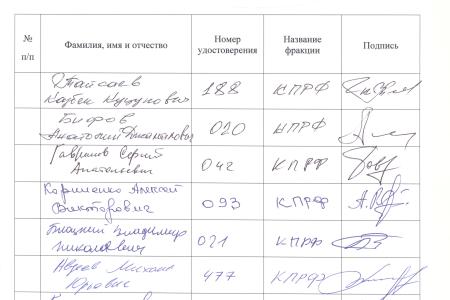 № п/п Фамилия, имя и отчество Номер удостоверения Название фракции Подпись
Тайсаев
Казбек Куцукович 188 КПРФ
Бифов
Анатолий Джамалович 020 КПРФ
Гаврилов Сергей
Анатольевич 042 КПРФ
Корниенко Алексей
Викторович 093 КПРФ
Блоцкий Владимир
Николаевич 021 КПРФ
Авдеев Михаил
Юрьевич 477 КПРФ